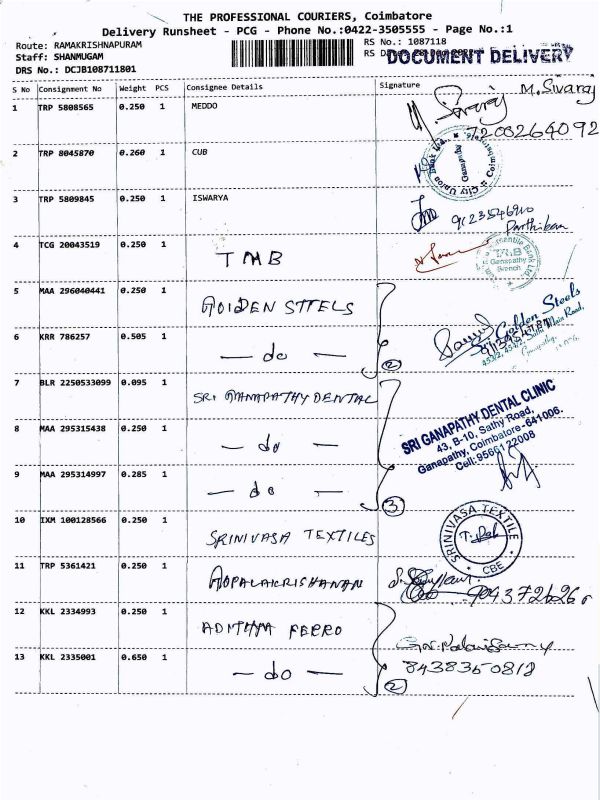 THE PROFESSIONAL COURIERS, Coimbatore
Delivery Runsheet - PCG - Phone No.:0422-3505555 - Page No.:1
Route: RAMAKRISHNAPURAM
Staff: SHANMUGAM
DRS No.: DCJB108711801
RS No.: 1087118
DOCUMENT DELIVERY
S No Consignment No Weight PCS Consignee Details Signature
1 TRP 5808565 0.250 1 MEDDO
M. Sivaraj
7200264092
2 TRP 8045870 0.260 1 CUB
City Union Bank Ltd. Ganapathy Coimbatore
3 TRP 5809845 0.250 1 ISWARYA
9123546910
Parthiban
4 TCG 20043519 0.250 1 TMB
Mercantile Bank Ltd.
TMB
Ganapathy
Branch
5 MAA 296040441 0.250 1 GOLDEN STTELS
Sri Golden Steels
6 KRR 786257 0.505 1 — do —
2
7 BLR 2250533099 0.095 1 SRI GANAPATHY DENTAL
SRI GANAPATHY DENTAL CLINIC
43, B-10, Sathy Road,
Ganapathy, Coimbatore - 641006.
Cell: 95661 22008
8 MAA 295315438 0.250 1 — do —
9 MAA 295314997 0.285 1 — do —
3
10 IXM 100128566 0.250 1 SRINIVASA TEXTILES
SRINIVASA TEXTILE
CBE
11 TRP 5361421 0.250 1 GOPALAKRISHANAN
12 KKL 2334993 0.250 1 ADITHYA FERRO
13 KKL 2335001 0.650 1 — do —
8438350812
2